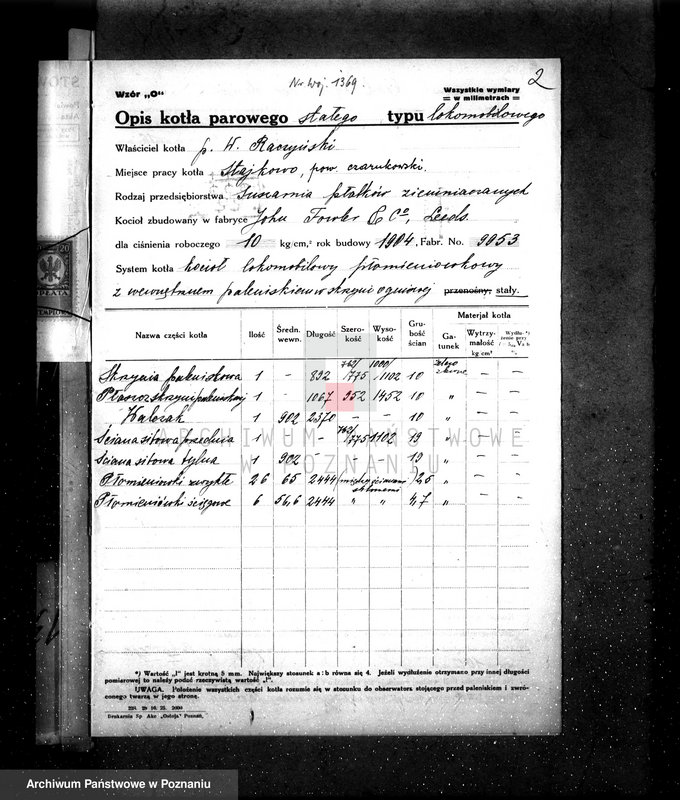 Nr woj. 1369.
2
Wzór „O“
Wszystkie wymiary
= w milimetrach =
Opis kotła parowego stałego typu lokomobilowego
Właściciel kotła p. W. Raczyński
Miejsce pracy kotła Stajkowo, pow. czarnkowski.
Rodzaj przedsiębiorstwa Suszarnia płatków ziemniaczanych
Kocioł zbudowany w fabryce John Fowler & Co, Leeds.
dla ciśnienia roboczego 10 kg/cm,² rok budowy 1904, Fabr. No. 9953
System kotła kocioł lokomobilowy płomieniówkowy
z wewnętrznem paleniskiem w skrzyni ogniowej przenośny, stały.
Nazwa części kotła Ilość Średn. wewn. Długość Szerokość Wysokość Grubość ścian Materjał kotła
Gatunek Wytrzymałość kg cm² Wydłużenie przy
Skrzynia paleniskowa 1 – 892 762/775 1000/1102 10 żelazo zlewne – –
Płaszcz skrzyni paleniskowej 1 – 1067 952 1452 10 „ – –
Walczak 1 902 2370 – – 10 „ – –
Ściana sitowa przednia 1 – – 762/775 1102 19 „ – –
Ściana sitowa tylna 1 902 – – – 19 „ – –
Płomieniówki zwykłe 26 65 2444 (między ścianami sitowemi) 2,5 „ – –
Płomieniówki ściągowe 6 56,6 2444 „ „ 4,7 „ – –
ARCHIWUM PAŃSTWOWE
W POZNANIU
*) Wartość „l“ jest krotną 5 mm. Największy stosunek a : b równa się 4. Jeżeli wydłużenie otrzymano przy innej długości
pomiarowej to należy podać rzeczywistą wartość „l“.
UWAGA. Położenie wszystkich części kotła rozumie się w stosunku do obserwatora stojącego przed paleniskiem i zwróconego
twarzą w jego stronę.
Drukarnia Sp Akc „Ostoja“ Poznań,
Archiwum Państwowe w Poznaniu